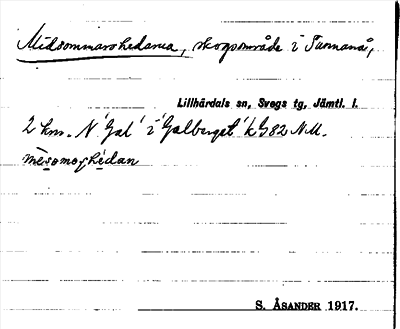 Midsommarshedarna, skogsområde i Tannanäs,
Lillhärdals sn, Svegs tg, Jämtl. l.
2 km. N 'Gal' i 'Galberget' k G82 N.U.
S. ÅSANDER 1917.